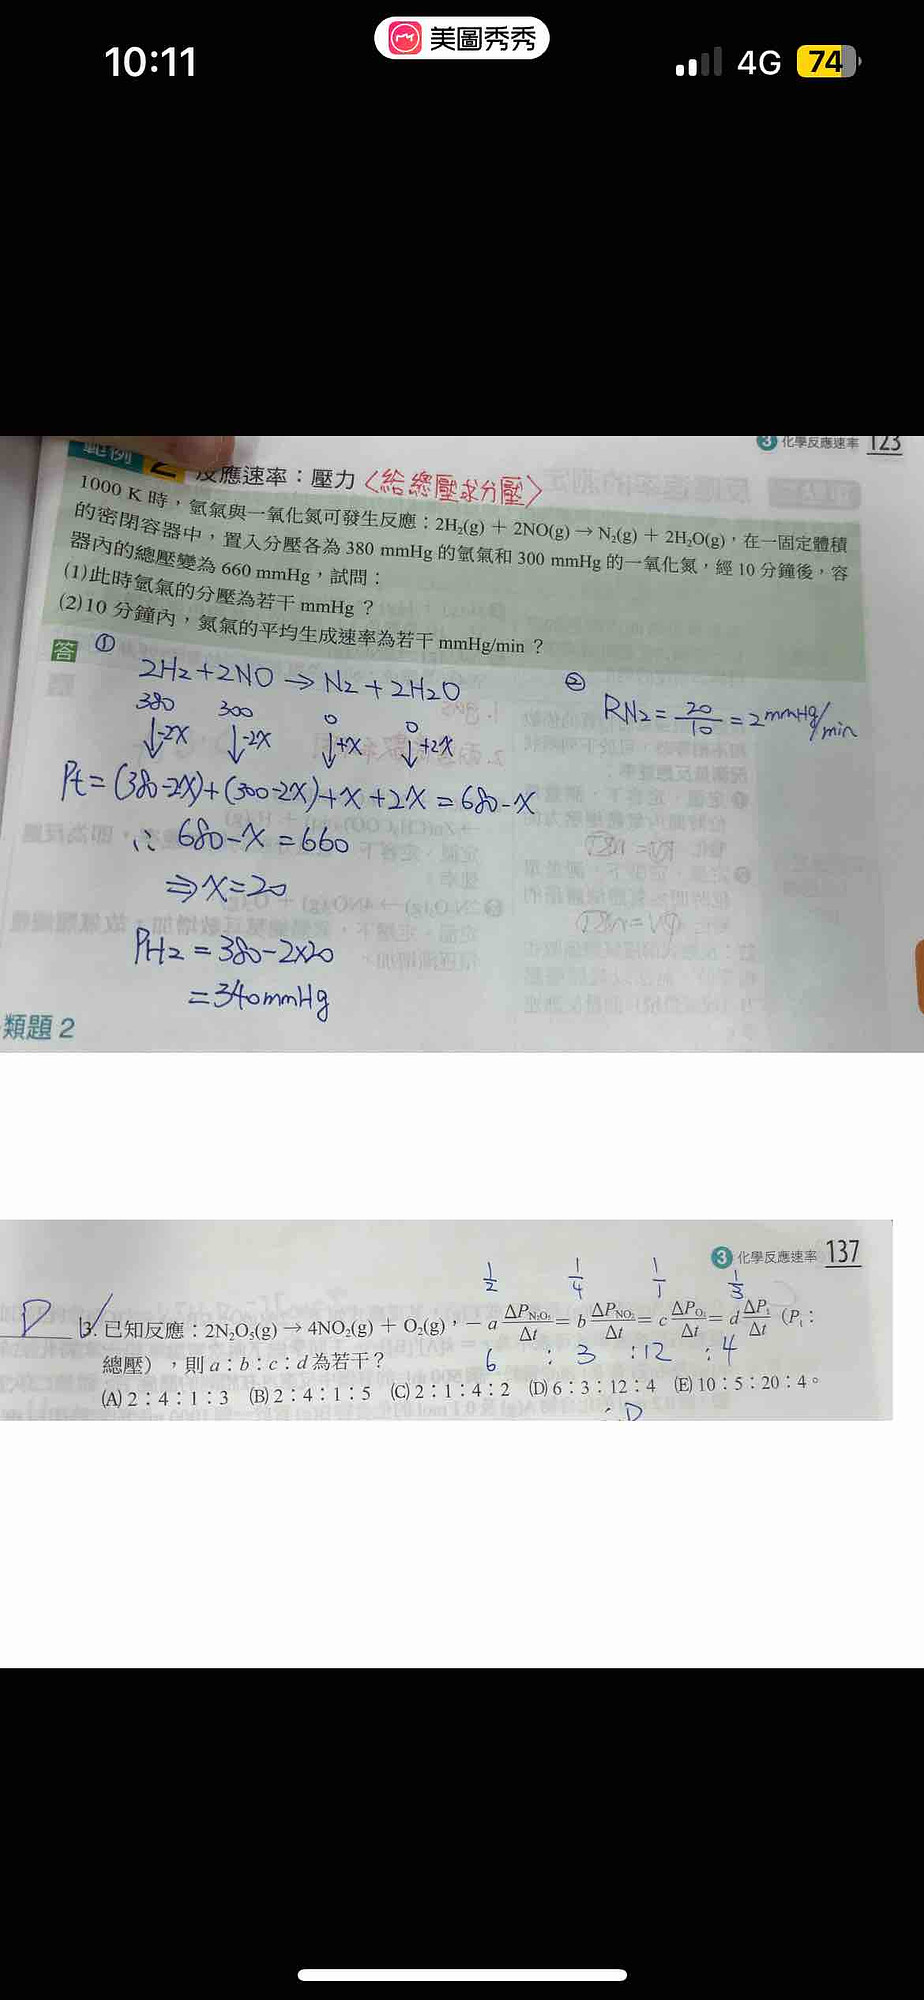 10:11
美圖秀秀
4G
74
3 化學反應速率 123
範例 2 反應速率：壓力〈給總壓求分壓〉
1000 K 時，氫氣與一氧化氮可發生反應：2H₂(g) + 2NO(g) → N₂(g) + 2H₂O(g)，在一固定體積
的密閉容器中，置入分壓各為 380 mmHg 的氫氣和 300 mmHg 的一氧化氮，經 10 分鐘後，容
器內的總壓變為 660 mmHg，試問：
(1)此時氫氣的分壓為若干 mmHg？
(2)10 分鐘內，氮氣的平均生成速率為若干 mmHg/min？
答 ①
2H₂ + 2NO → N₂ + 2H₂O
380 300 0 0
↓-2X ↓-2X ↓+X ↓+2X
Pt = (380-2X)+(300-2X)+X+2X = 680-X
∴ 680-X = 660
⇒ X = 20
PH₂ = 380-2×20
= 340mmHg
② RN₂ = 20/10 = 2 mmHg/min
類題 2
3 化學反應速率 137
1/2 1/4 1/1 1/3
D 13. 已知反應：2N₂O₅(g) → 4NO₂(g) + O₂(g)，－a ΔP_N₂O₅/Δt = b ΔP_NO₂/Δt = c ΔP_O₂/Δt = d ΔP_t/Δt (P_t：
總壓），則 a：b：c：d 為若干？
6 : 3 : 12 : 4
(A) 2：4：1：3 (B) 2：4：1：5 (C) 2：1：4：2 (D) 6：3：12：4 (E) 10：5：20：4。
∴D